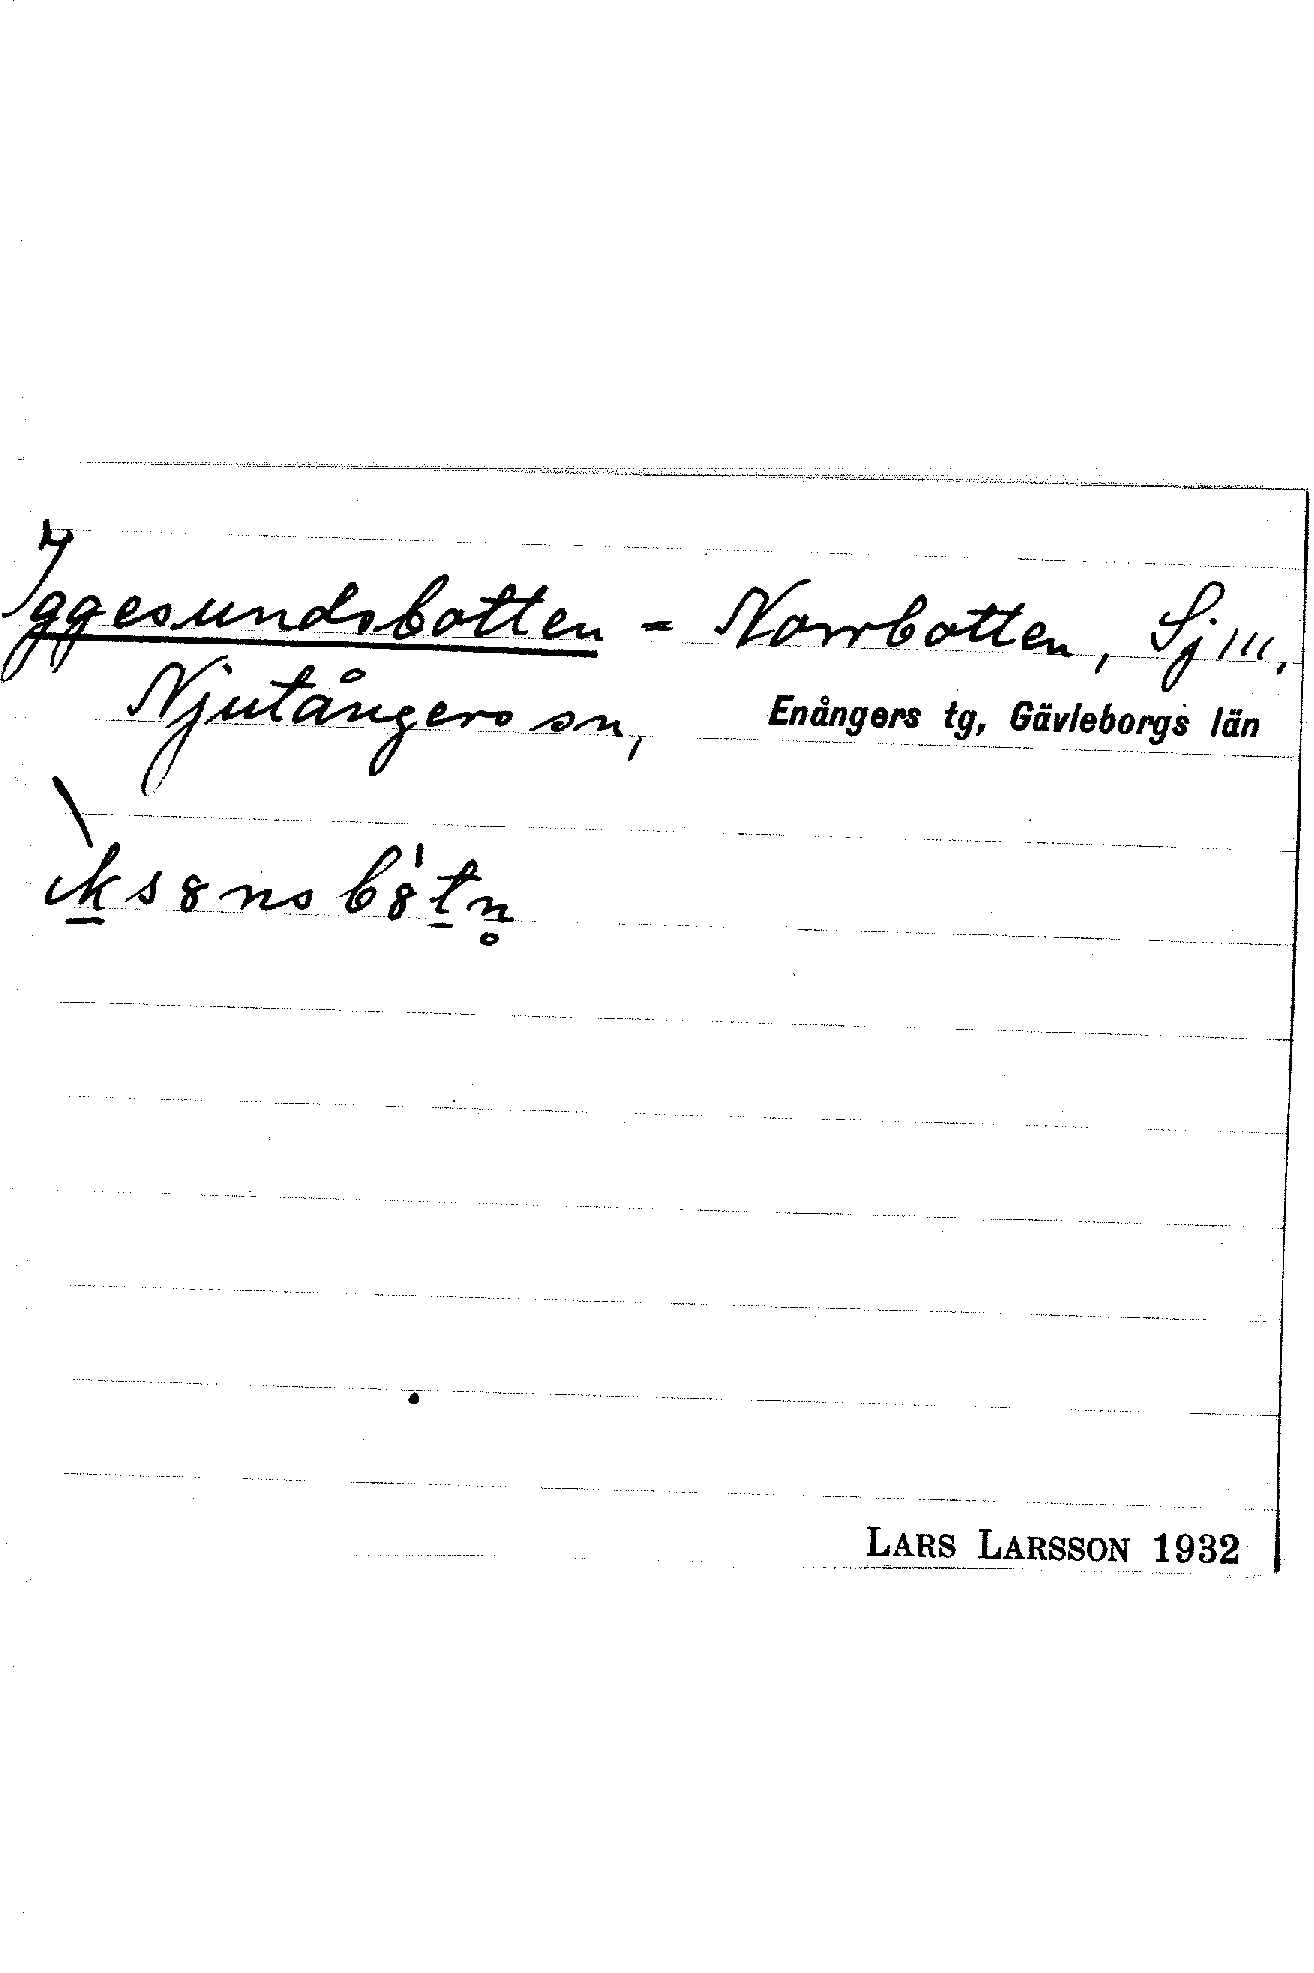 Iggesundsbotten = Norrbotten, Sjm,
Njutångers sn, Enångers tg, Gävleborgs län
LARS LARSSON 1932